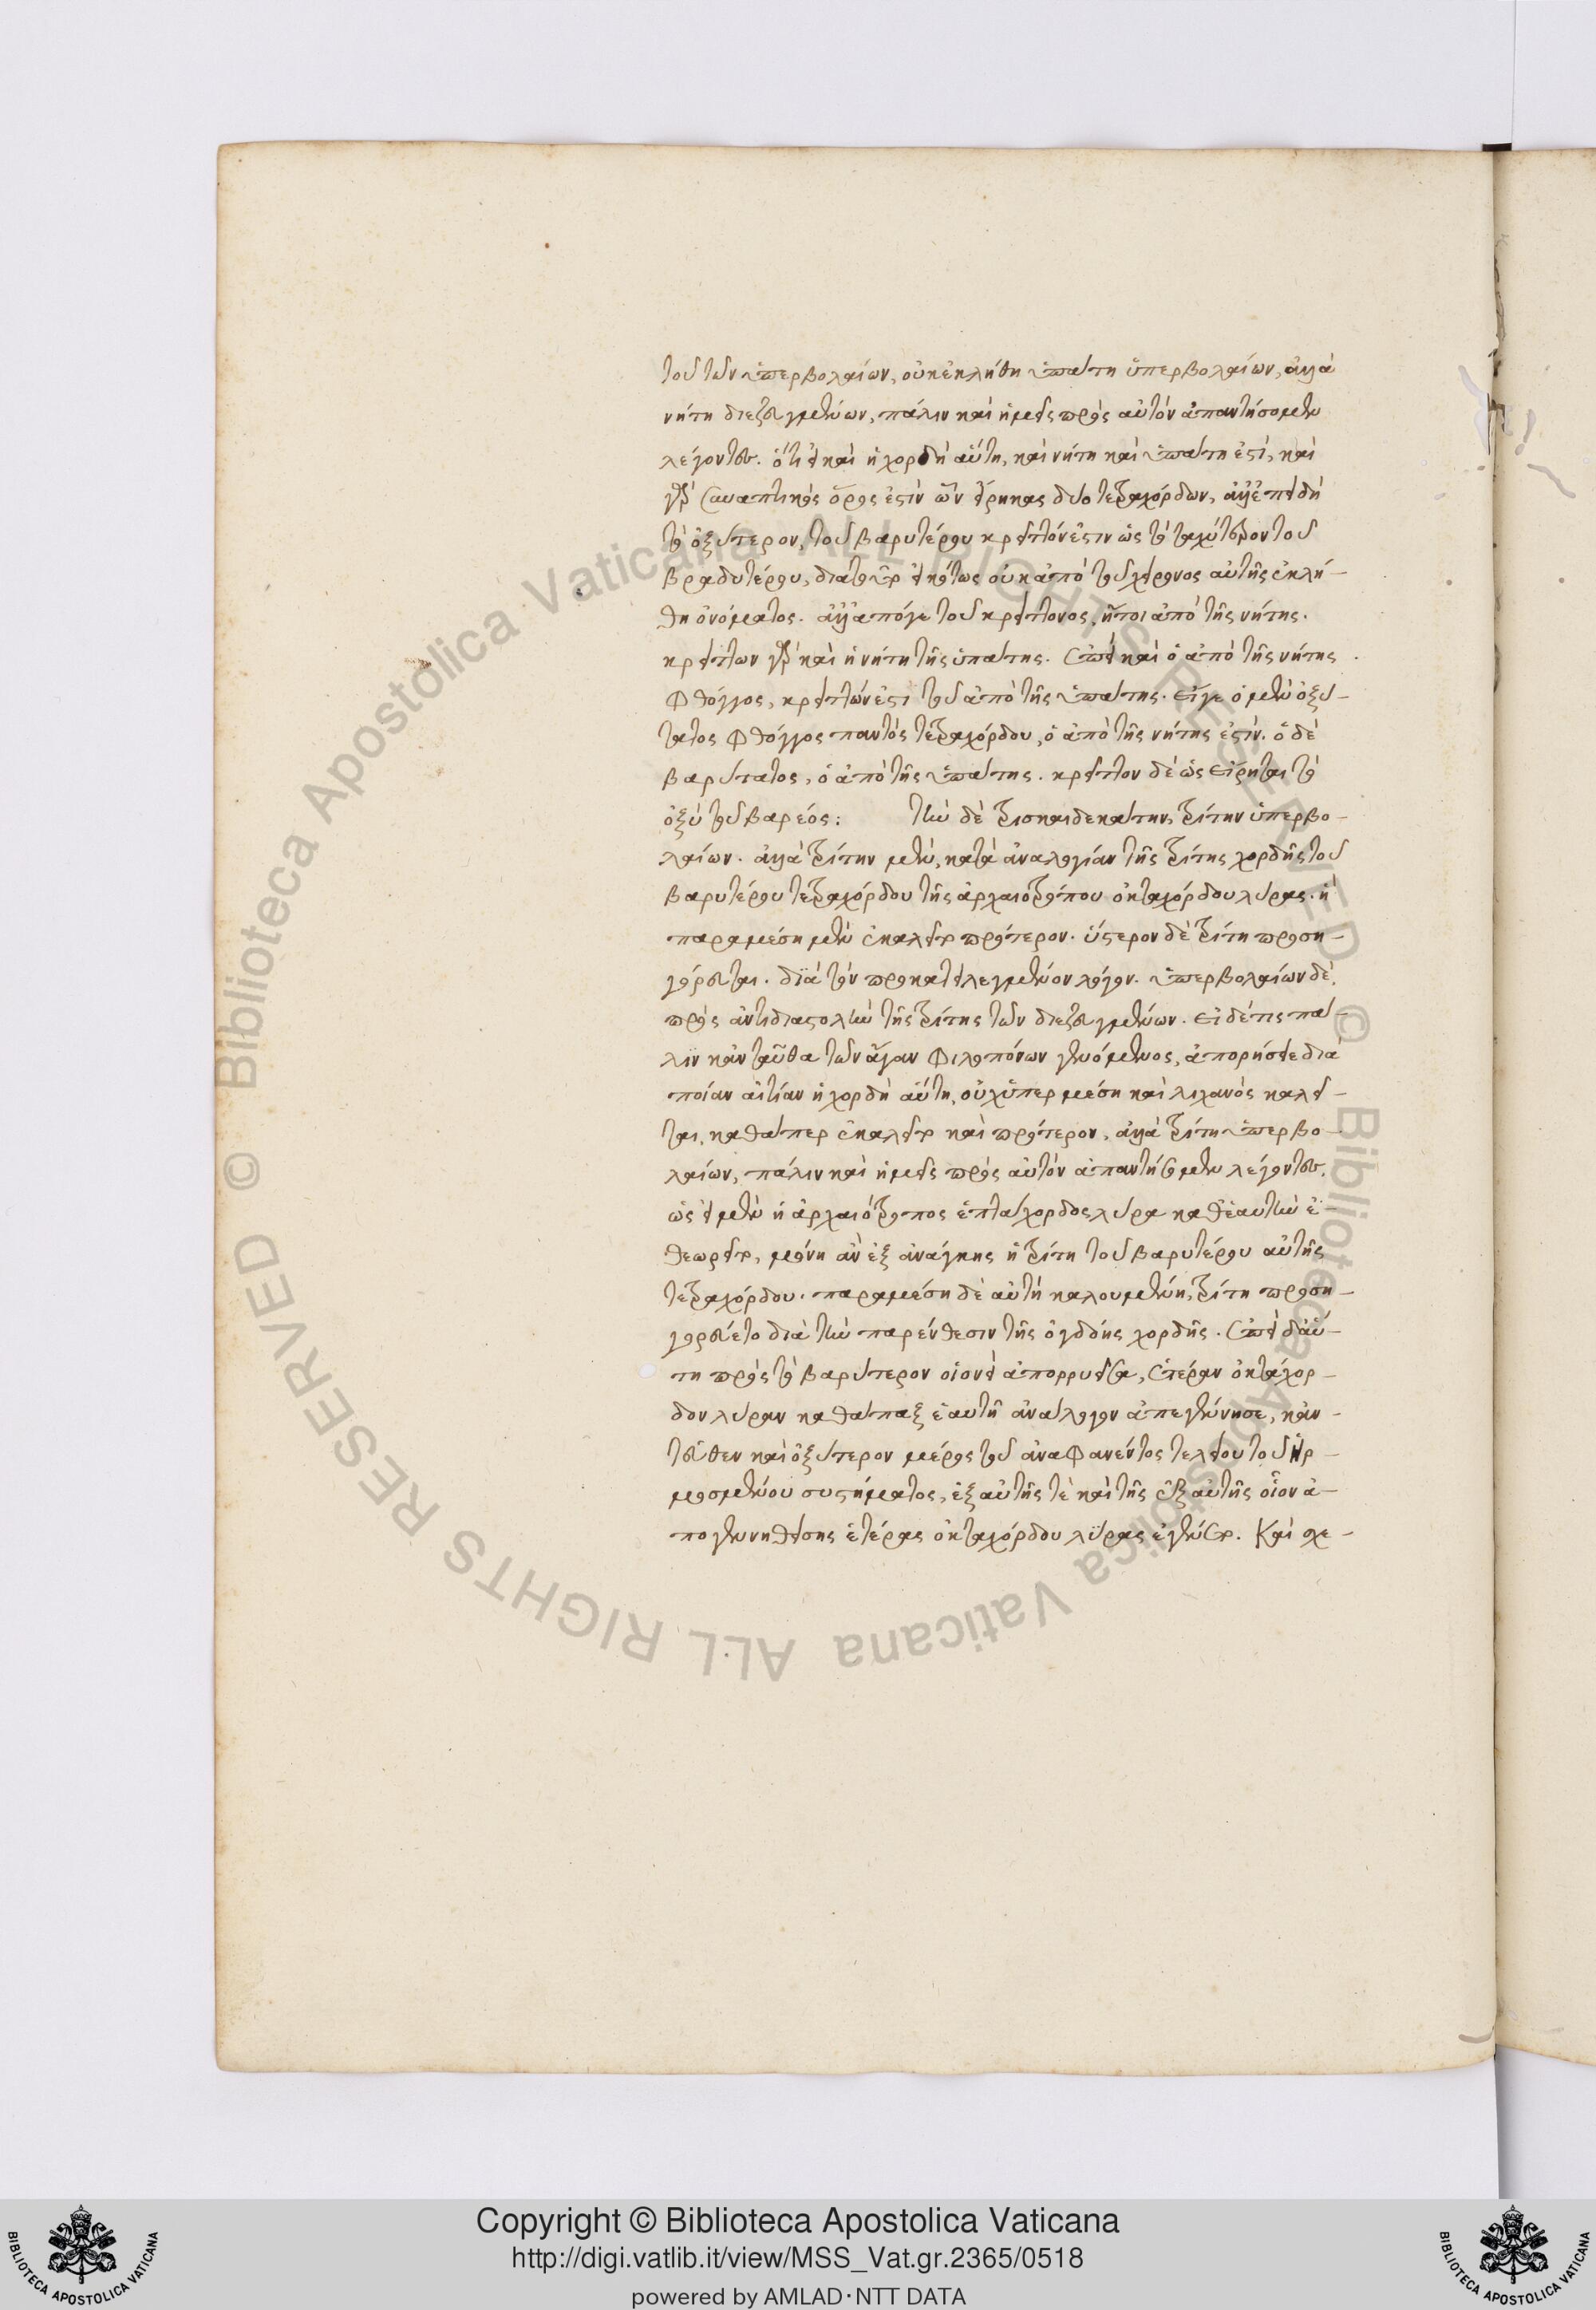 τοῦ τῶν ὑπερβολαίων, οὐκ ἐκλήθη ὑπάτη ὑπερβολαίων, ἀλλὰ
νήτη διεζευγμένων, πάλιν καὶ ἡμεῖς πρὸς αὐτὸν ἀπαντήσομεν
λέγοντες. ὅτι εἰ καὶ ἡ χορδὴ αὕτη, καὶ νήτη καὶ ὑπάτη ἐστί, καὶ
γὰρ συναπτικὸς ὅρος ἐστὶν ὧν εἴρηκας δύο τετραχόρδων, ἀλλ' ἐπειδὴ
τὸ ὀξύτερον, τοῦ βαρυτέρου κρεῖττόν ἐστιν ὡς τὸ ταχύτερον τοῦ
βραδυτέρου, διὰ τοῦτο εἰκότως οὐκ ἀπὸ τοῦ χείρονος αὐτῆς ἐκλή-
θη ὀνόματος. ἀλλ' ἀπό γε τοῦ κρείττονος, ἤτοι ἀπὸ τῆς νήτης.
κρείττων γὰρ καὶ ἡ νήτη τῆς ὑπάτης. ἐπεὶ καὶ ὁ ἀπὸ τῆς νήτης
φθόγγος, κρείττων ἐστὶ τοῦ ἀπὸ τῆς ὑπάτης. εἴγε ὁ μὲν ὀξύ-
τατος φθόγγος παντὸς τετραχόρδου, ὁ ἀπὸ τῆς νήτης ἐστίν. ὁ δὲ
βαρύτατος, ὁ ἀπὸ τῆς ὑπάτης. κρεῖττον δὲ ὡς εἴρηται τὸ
ὀξὺ τοῦ βαρέος: τὴν δὲ τρισκαιδεκάτην, τρίτην ὑπερβο-
λαίων. ἀλλὰ τρίτην μὲν, κατὰ ἀναλογίαν τῆς τρίτης χορδῆς τοῦ
βαρυτέρου τετραχόρδου τῆς ἀρχαιοτρόπου ὀκταχόρδου λύρας. ἡ
παραμέση μὲν ἐκαλεῖτο πρότερον. ὕστερον δὲ τρίτη προση-
γόρευται. διὰ τὸν προκατειλεγμένον λόγον. ὑπερβολαίων δὲ,
πρὸς ἀντιδιαστολὴν τῆς τρίτης τῶν διεζευγμένων. εἰ δέ τις πά-
λιν κἀνταῦθα τῶν ἄγαν φιλοπόνων γενόμενος, ἀπορήσειε διὰ
ποίαν αἰτίαν ἡ χορδὴ αὕτη, οὐχ ὑπερμέση καὶ λιχανὸς καλεῖ-
ται, καθάπερ ἐκαλεῖτο καὶ πρότερον, ἀλλὰ τρίτη ὑπερβο-
λαίων, πάλιν καὶ ἡμεῖς πρὸς αὐτὸν ἀπαντήσομεν λέγοντες.
ὡς εἰ μὲν ἡ ἀρχαιότροπος ἑπτάχορδος λύρα καθ' ἑαυτὴν ἐ-
θεωρεῖτο, μόνη ἂν ἐξ ἀνάγκης ἡ τρίτη τοῦ βαρυτέρου αὐτῆς
τετραχόρδου. παραμέση δὲ αὐτὴ καλουμένη, τρίτη προση-
γορεύετο διὰ τὴν παρένθεσιν τῆς ὀγδόης χορδῆς. ἐπεὶ δ' αὕ-
τη πρὸς τὸ βαρύτερον οἱονεὶ ἀπορρυεῖσα, ἑτέραν ὀκτάχορ-
δον λύραν καθάπαξ ἑαυτῇ ἀνάλογον ἀπεγέννησε, κἀν-
τεῦθεν καὶ ὀξύτερον μέρος τοῦ ἀναφανέντος τελείου τοῦ ἡρ-
μοσμένου συστήματος, ἐξ αὐτῆς τὲ καὶ τῆς ἐξ αὐτῆς οἷον ἀ-
πογεννηθείσης ἑτέρας ὀκταχόρδου λύρας ἐγένετο. καὶ σχε-
© Biblioteca Apostolica Vaticana ALL RIGHTS RESERVED © Biblioteca Apostolica Vaticana ALL RIGHTS RESERVED
Copyright © Biblioteca Apostolica Vaticana
http://digi.vatlib.it/view/MSS_Vat.gr.2365/0518
powered by AMLAD·NTT DATA
BIBLIOTECA APOSTOLICA VATICANA
BIBLIOTECA APOSTOLICA VATICANA